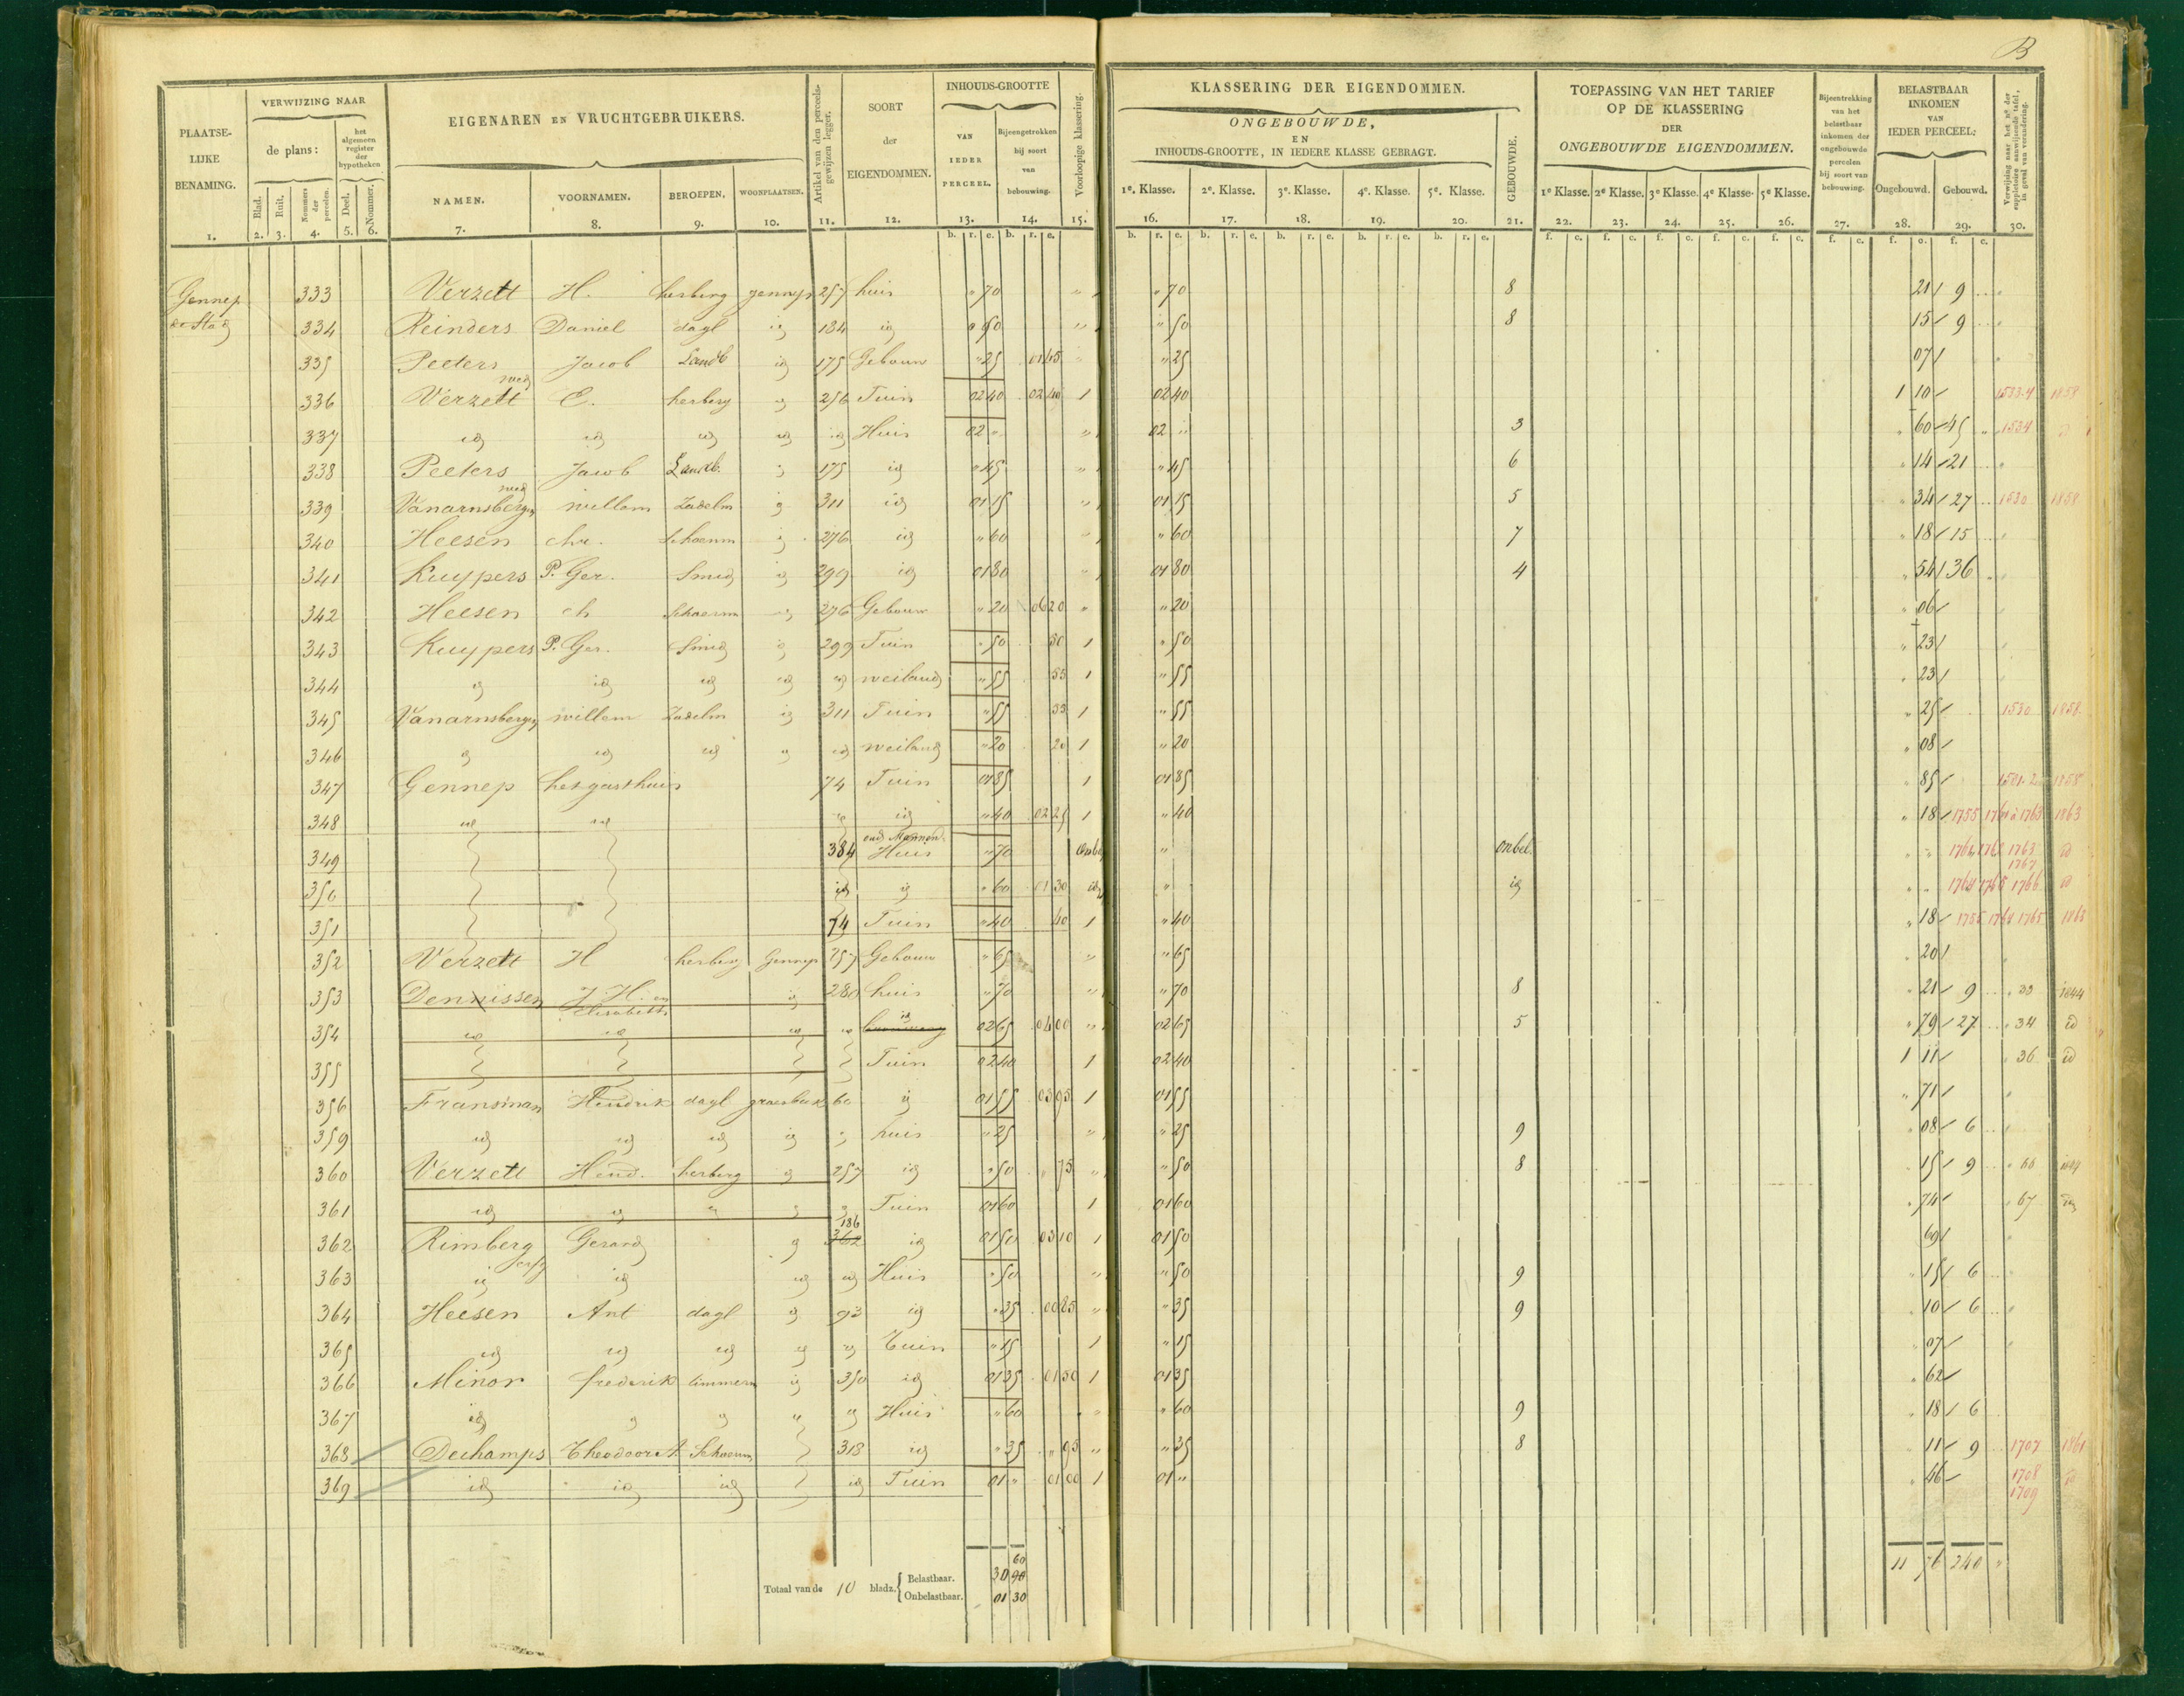 B
PLAATSE-LIJKE BENAMING. 1.
VERWIJZING NAAR
de plans:
Blad. 2.
Ruit. 3.
Nommers der perceelen. 4.
het algemeen register der hypotheken
Deel. 5.
Nommer. 6.
EIGENAREN EN VRUCHTGEBRUIKERS.
NAMEN. 7.
VOORNAMEN. 8.
BEROEPEN. 9.
WOONPLAATSEN. 10.
Artikel van den perceels-gewijzen legger. 11.
SOORT der EIGENDOMMEN. 12.
INHOUDS-GROOTTE
VAN IEDER PERCEEL. 13.
Bijeengetrokken bij soort van bebouwing. 14.
Voorloopige klassering. 15.
KLASSERING DER EIGENDOMMEN.
ONGEBOUWDE,
EN
INHOUDS-GROOTTE, IN IEDERE KLASSE GEBRAGT.
1e. Klasse. 16.
2e. Klasse. 17.
3e. Klasse. 18.
4e. Klasse. 19.
5e. Klasse. 20.
GEBOUWDE. 21.
TOEPASSING VAN HET TARIEF
OP DE KLASSERING
DER
ONGEBOUWDE EIGENDOMMEN.
1e Klasse. 22.
2e Klasse. 23.
3e Klasse. 24.
4e Klasse. 25.
5e Klasse. 26.
Bijeentrekking van het belastbaar inkomen der ongebouwde percelen bij soort van bebouwing. 27.
BELASTBAAR INKOMEN VAN IEDER PERCEEL:
Ongebouwd. 28.
Gebouwd. 29.
Verwijzing naar het no der suppletoire aanwijzende tafel, in geval van verandering. 30.
Gennep 333 Verzett H. herberg gennep 257 huis " 70 " " 70 8 21 9
de Stad 334 Reinders Daniel dagl id 184 id " 50 " " 50 8 15 9
335 Peeters Jacob Landb id 175 Gebouw " 25 01 45 " " 25 07
336 Verzett wed E. herberg id 256 Tuin 02 40 02 40 1 02 40 1 10 1533.4 1858
337 id id id id id Huis 02 " " 02 " 3 60 45 1534 id
338 Peeters Jacob Landb. id 175 id " 45 " " 45 6 14 21
339 Vanarnsbergen wed willem Zadelm id 311 id 01 15 " 01 15 5 34 27 1530 1858
340 Heesen chr. Schoenm id 276 id " 60 " " 60 7 18 15
341 Kuypers P. Ger. Smid id 299 id 01 80 " 01 80 4 54 36
342 Heesen ch Schoenm id 276 Gebouw " 20 06 20 " " 20 06
343 Kuypers P. Ger. Smid id 299 Tuin " 50 50 1 " 50 23
344 id id id id id weiland " 55 55 1 " 55 23
345 Vanarnsbergen willem Zadelm id 311 Tuin " 55 55 1 " 55 25 1530 1858
346 id id id id id weiland " 20 20 1 " 20 08
347 Gennep het gasthuis 74 Tuin 01 85 1 01 85 85 1858
348 id id id id " 40 02 25 1 " 40 18 1755 1763 1863
349 384 oud Mannen Huis " 70 Onbel " onbel. 1763 1767 id
350 id id " 60 01 30 id " id 1764 1765 1766 id
351 74 Tuin " 40 40 1 " 40 18 1755 1764 1765 1863
352 Verzett H herberg Gennep 257 Gebouw " 65 " " 65 20
353 Dennissen J. H. en Elisabeth id 280 huis " 70 " " 70 8 21 9 33 1844
354 id id id id id 02 65 04 00 " 02 65 5 79 27 34 id
355 Tuin 02 40 1 02 40 1 11 36 id
356 Fransman Hendrik dagl groesbeek 60 id 01 55 03 95 1 01 55 71
359 id id id id id huis " 25 " " 25 9 08 6
360 Verzett Hend. herberg id 257 id " 50 " 75 " " 50 8 15 9
361 id id id id id Tuin 01 60 1 01 60 74 67 id
362 Rimberg Gerard id 186 362 id 01 50 03 10 1 01 50 69
363 id erfg id id id Huis " 50 " " 50 9 15 6
364 Heesen Ant dagl id 93 id " 35 00 85 " " 35 9 10 6
365 id id id id id Tuin " 15 1 " 15 07
366 Minor frederik timmerm id 350 id 01 35 01 50 1 01 35 62
367 id id id id id Huis " 60 " " 60 9 18 6
368 Dechamps Theodoor A. Schoenm 318 id " 35 " 95 " " 35 8 11 9 1707 1861
369 id id id id Tuin 01 " 01 00 1 01 " 46 1708 1709 id
Totaal van de 10 bladz. Belastbaar. 30 90 60
Onbelastbaar. 01 30
11 76 240 "